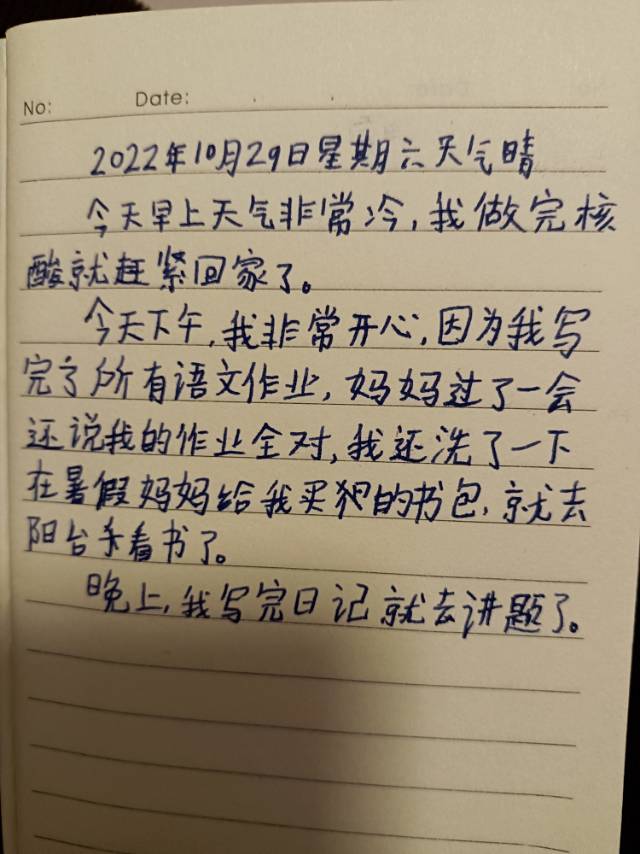 No: Date:
2022年10月29日星期六天气晴
今天早上天气非常冷,我做完核
酸就赶紧回家了。
今天下午,我非常开心,因为我写
完了所有语文作业,妈妈过了一会
还说我的作业全对,我还洗了一下
在暑假妈妈给我买的书包,就去
阳台看书了。
晚上,我写完日记就去讲题了。